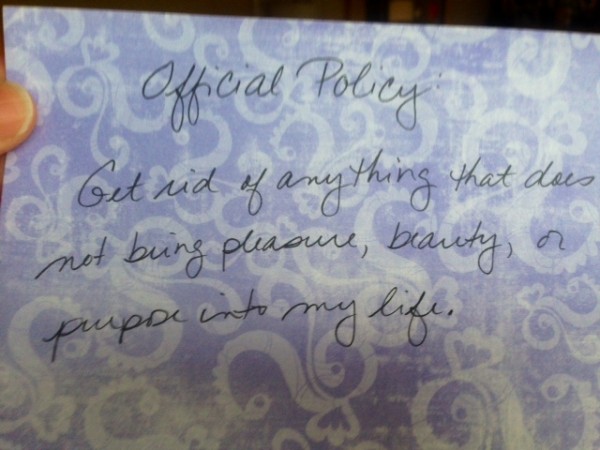 Official Policy:
Get rid of anything that does
not bring pleasure, beauty, or
purpose into my life.